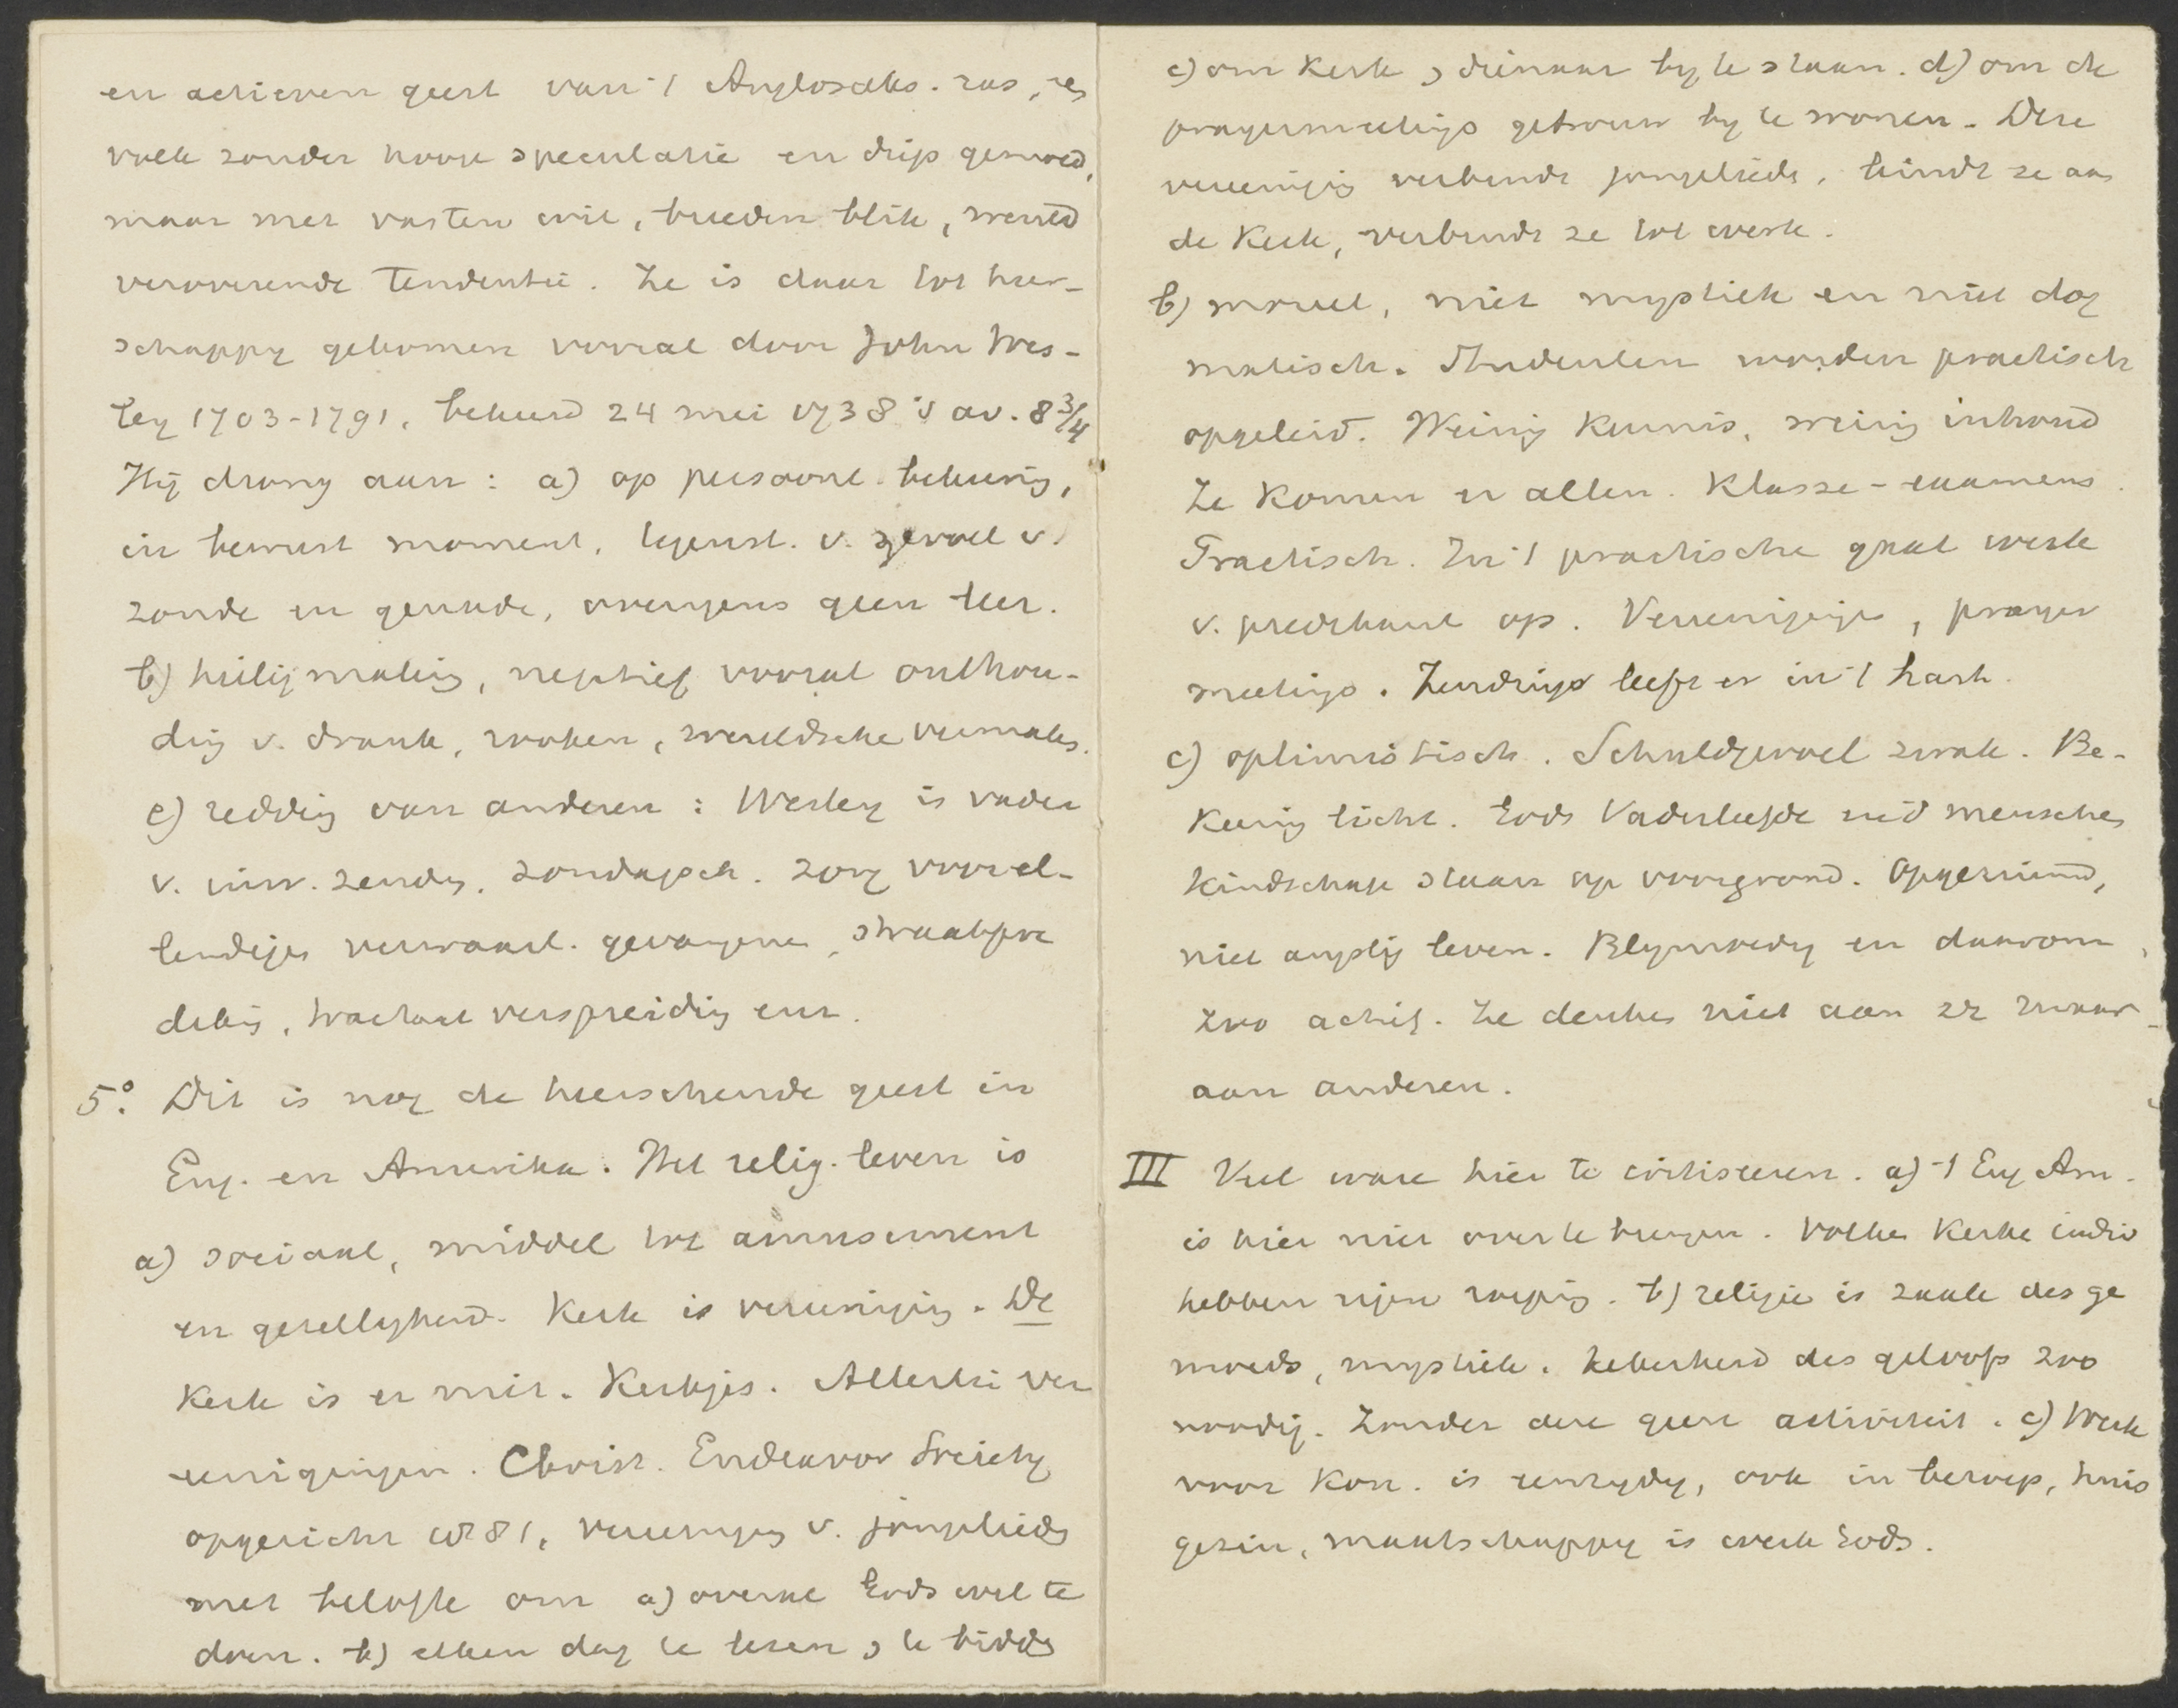 en actieven geest van 't Anglosaks. ras, 
volk zonder hooge speculatie en diep gemoed,
maar met vasten wil, breeden blik, wereld
veroverende tendentie. Ze is daar tot heer-
schappy gekomen vooral door John Wes-
ley 1703-1791, bekeerd 24 mei 1738 's av. 8 3/4
Hij drong aan: a) op persoonl. bekeering,
in bewust moment, tegenst. v. gevoel v.
zonde en genade, overigens geen leer.
b) heiligmaking, negatief vooral onthou-
ding v. drank, rooken, wereldsche vermaken.
c) redding van anderen: Wesley is vader
v. inw. zending, zondagsch. zorg voor el-
lendigen verwaarl. gevangenen, straatpre
deking, tractaat verspreiding enz.
5° Dit is nog de heerschende geest in
Eng. en Amerika. Het relig. leven is
a) sociaal, middel tot amusement
en gezellighed. Kerk is vereeniging. De
Kerk is er niet. Kerkjes. Allerlei ver
eenigingen. Christ. Endeavor Society
opgericht 1881, vereeniging v. jongelieden
met belofte om a) overal Gods wil te
doen. b) elken dag te lezen & te bidden
c) om Kerk & dienaar by te staan. d) om de
prayermeetings getrouw by te wonen. Deze
vereeniging verbindt jongelieden, bindt ze aan
de Kerk, verbindt ze tot werk.
b) moreel, niet mystiek en niet dog
matisch. Studenten worden practisch
opgeleid. Weinig kennis, weinig inhoud
Ze komen er allen. Klasse-examens.
Practisch. In 't practische gaat werk
v. predikant op. Vereenigingen, prayer
meetings. Zending leeft er in 't hart.
c) optimistisch. Schuldgevoel zwak. Be-
keering licht. Gods Vaderliefde en menschen
Kindschap staan op voorgrond. Opgeruimd,
niet angstig leven. Blymoedig en daarom
zoo actief. Ze denken niet aan zz maar
aan anderen.
III Veel ware hier te critiseeren. a) 't Eng Am.
is hier niet over te brengen. Volken Kerken indiv
hebben eigen roeping. b) religie is zaak des ge
moeds, mystiek. Zekerheid des geloofs zoo
noodig. Zonder deze geen activiteit. c) Werk
voor Kon. is eenzydig, ook in beroep, huis
gezin, maatschappy is werk Gods.